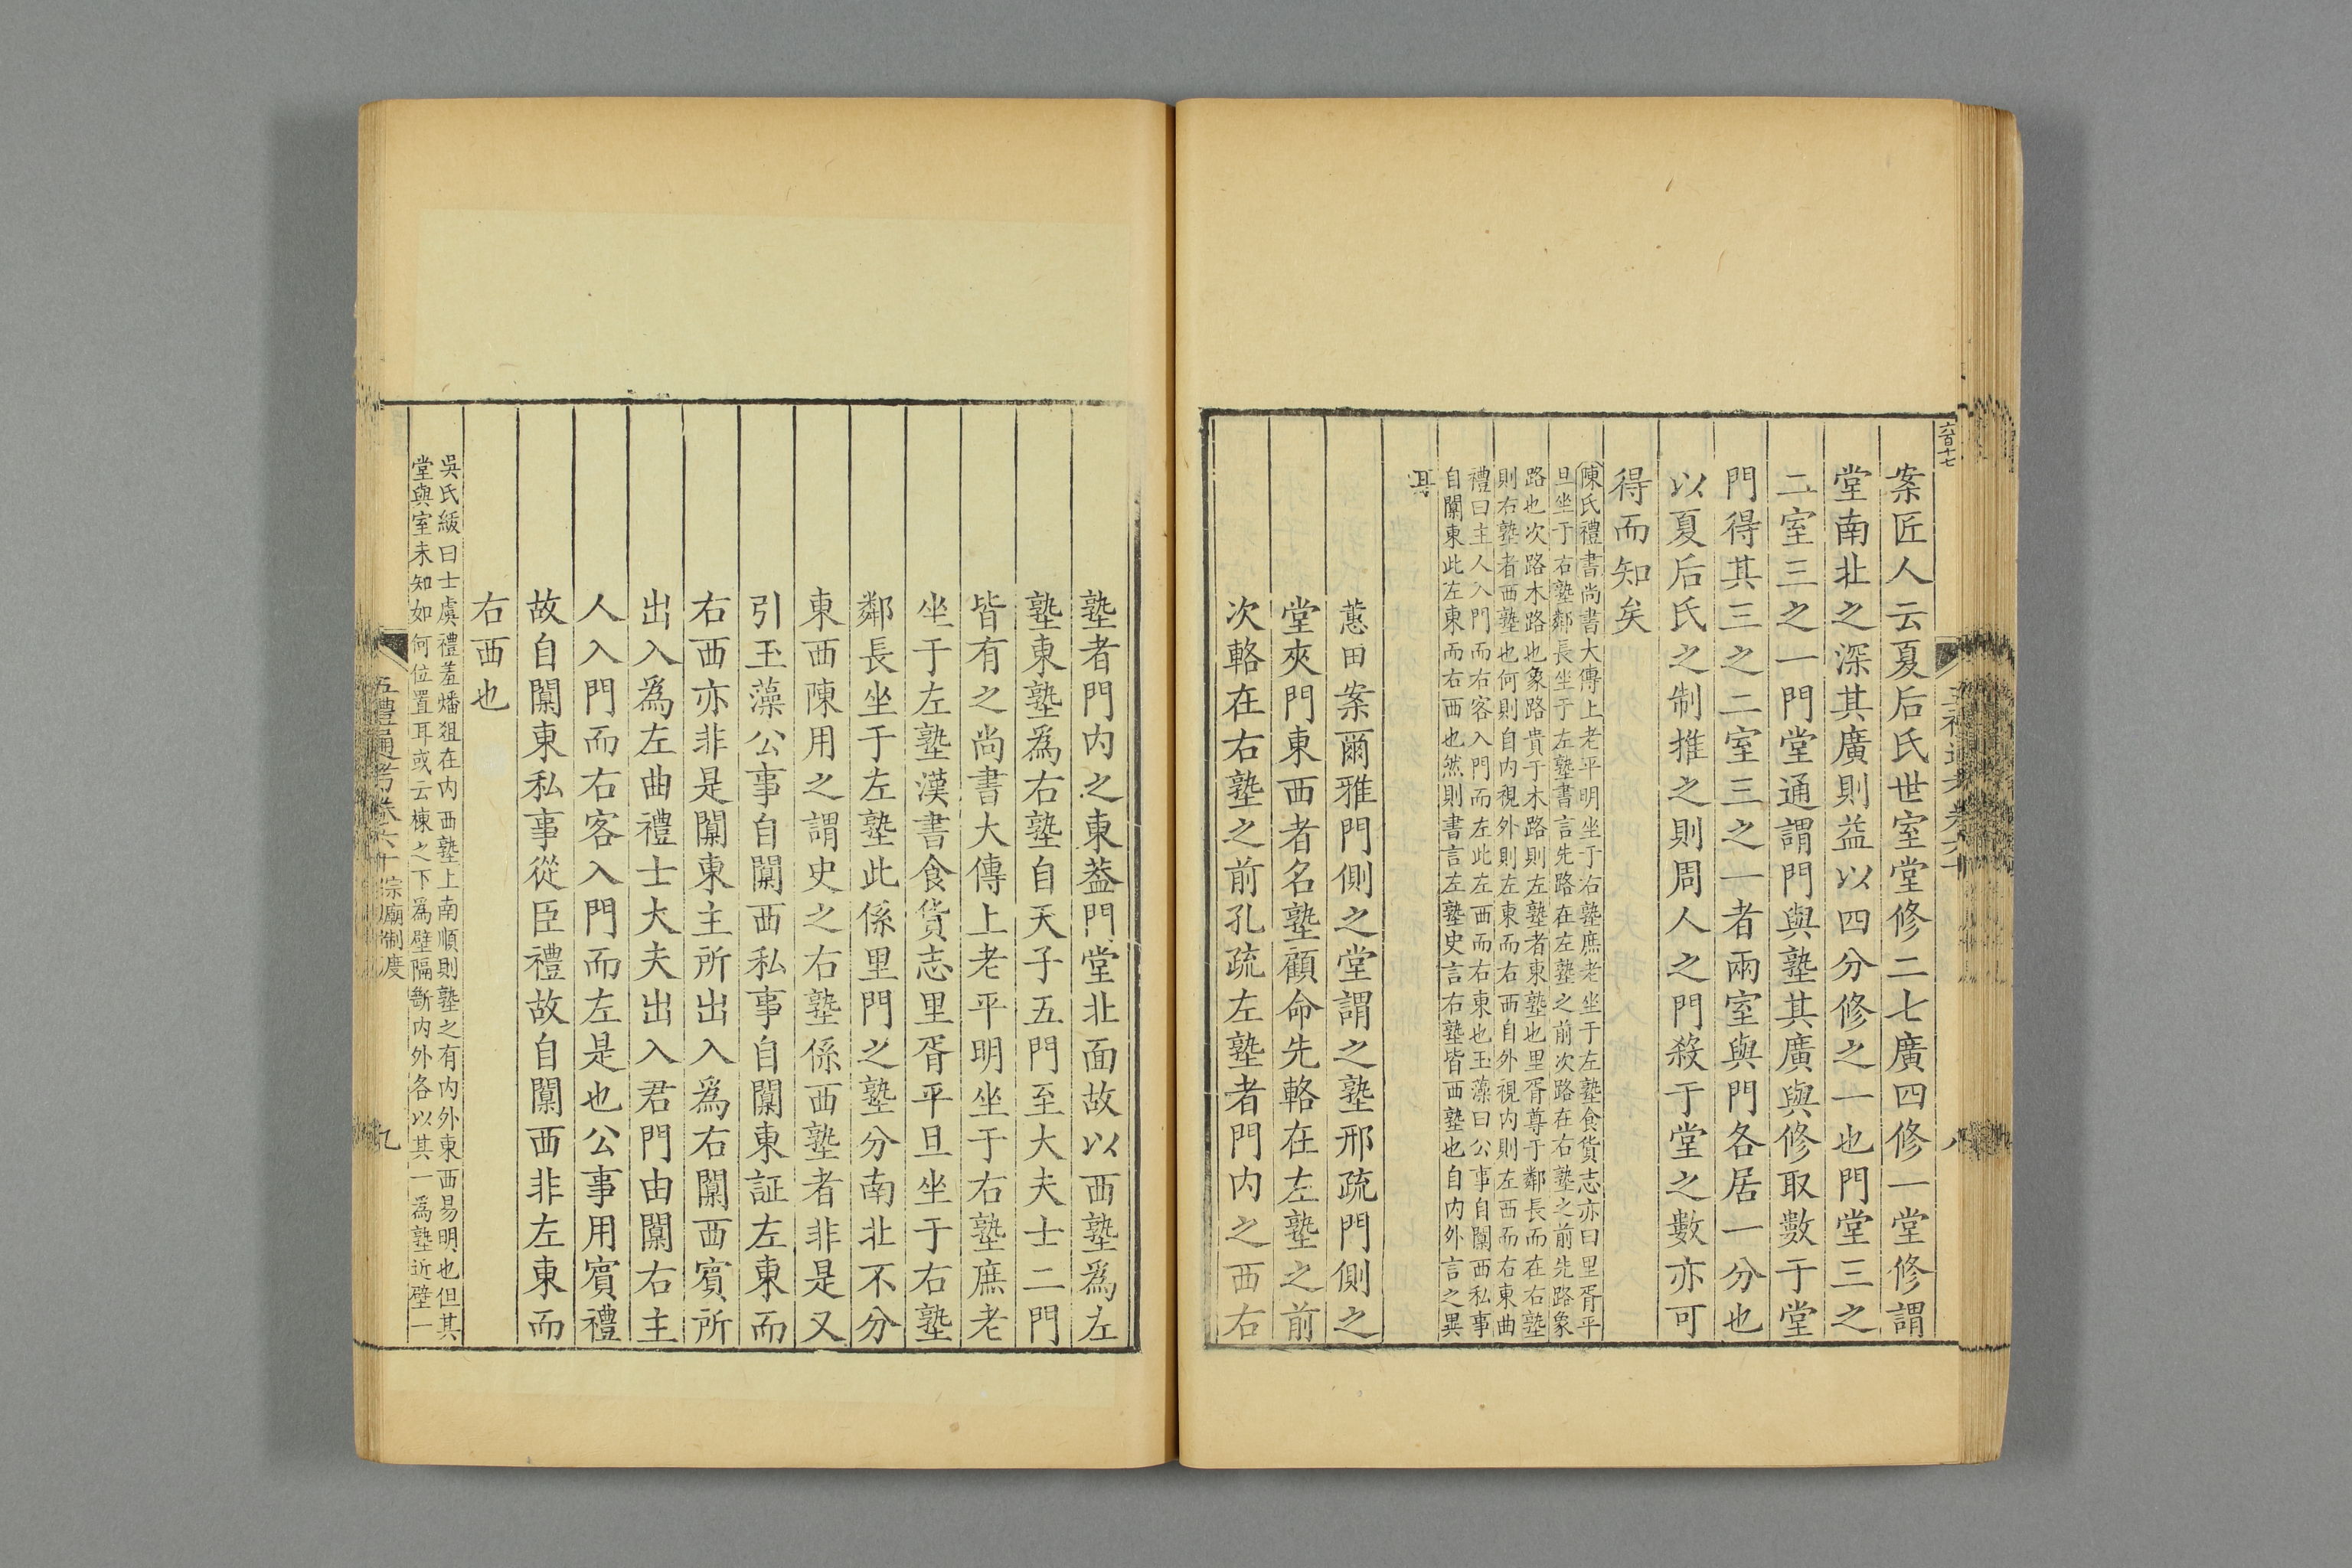 六百十七
案匠人云夏后氏世室堂修二七廣四修一堂修謂
堂南北之深其廣則益以四分修之一也門堂三之
二室三之一門堂通謂門與塾其廣與修取數于堂
門得其三之二室三之一者兩室與門各居一分也
以夏后氏之制推之則周人之門殺于堂之數亦可
得而知矣
陳氏禮書尚書大傳上老平明坐于右塾庶老坐于左塾食貨志亦曰里胥平
旦坐于右塾鄰長坐于左塾書言先路在左塾之前次路在右塾之前先路象
路也次路木路也象路貴于木路則左塾者東塾也里胥尊于鄰長而在右塾
則右塾者西塾也何則自內視外則左東而右西自外視内則左西而右東曲
禮曰主人入門而右客入門而左此左西而右東也玉藻曰公事自闑西私事
自闑東此左東而右西也然則書言左塾史言右塾皆西塾也自内外言之異
耳
蕙田案爾雅門側之堂謂之塾邢疏門側之
堂夾門東西者名塾顧命先輅在左塾之前
次輅在右塾之前孔疏左塾者門内之西右
八
塾者門内之東葢門堂北面故以西塾爲左
塾東塾爲右塾自天子五門至大夫士二門
皆有之尚書大傳上老平明坐于右塾庶老
坐于左塾漢書食貨志里胥平旦坐于右塾
鄰長坐于左塾此係里門之塾分南北不分
東西陳用之謂史之右塾係西塾者非是又
引玉藻公事自闑西私事自闑東証左東而
右西亦非是闑東主所出入爲右闑西賓所
出入爲左曲禮士大夫出入君門由闑右主
人入門而右客入門而左是也公事用賓禮
故自闑東私事從臣禮故自闑西非左東而
右西也
吳氏紱曰士虞禮羞燔俎在内西塾上南順則塾之有内外東西易明也但其
堂與室未知如何位置耳或云棟之下爲壁隔斷内外各以其一爲塾近壁一
五禮通考卷六十 宗廟制度
九